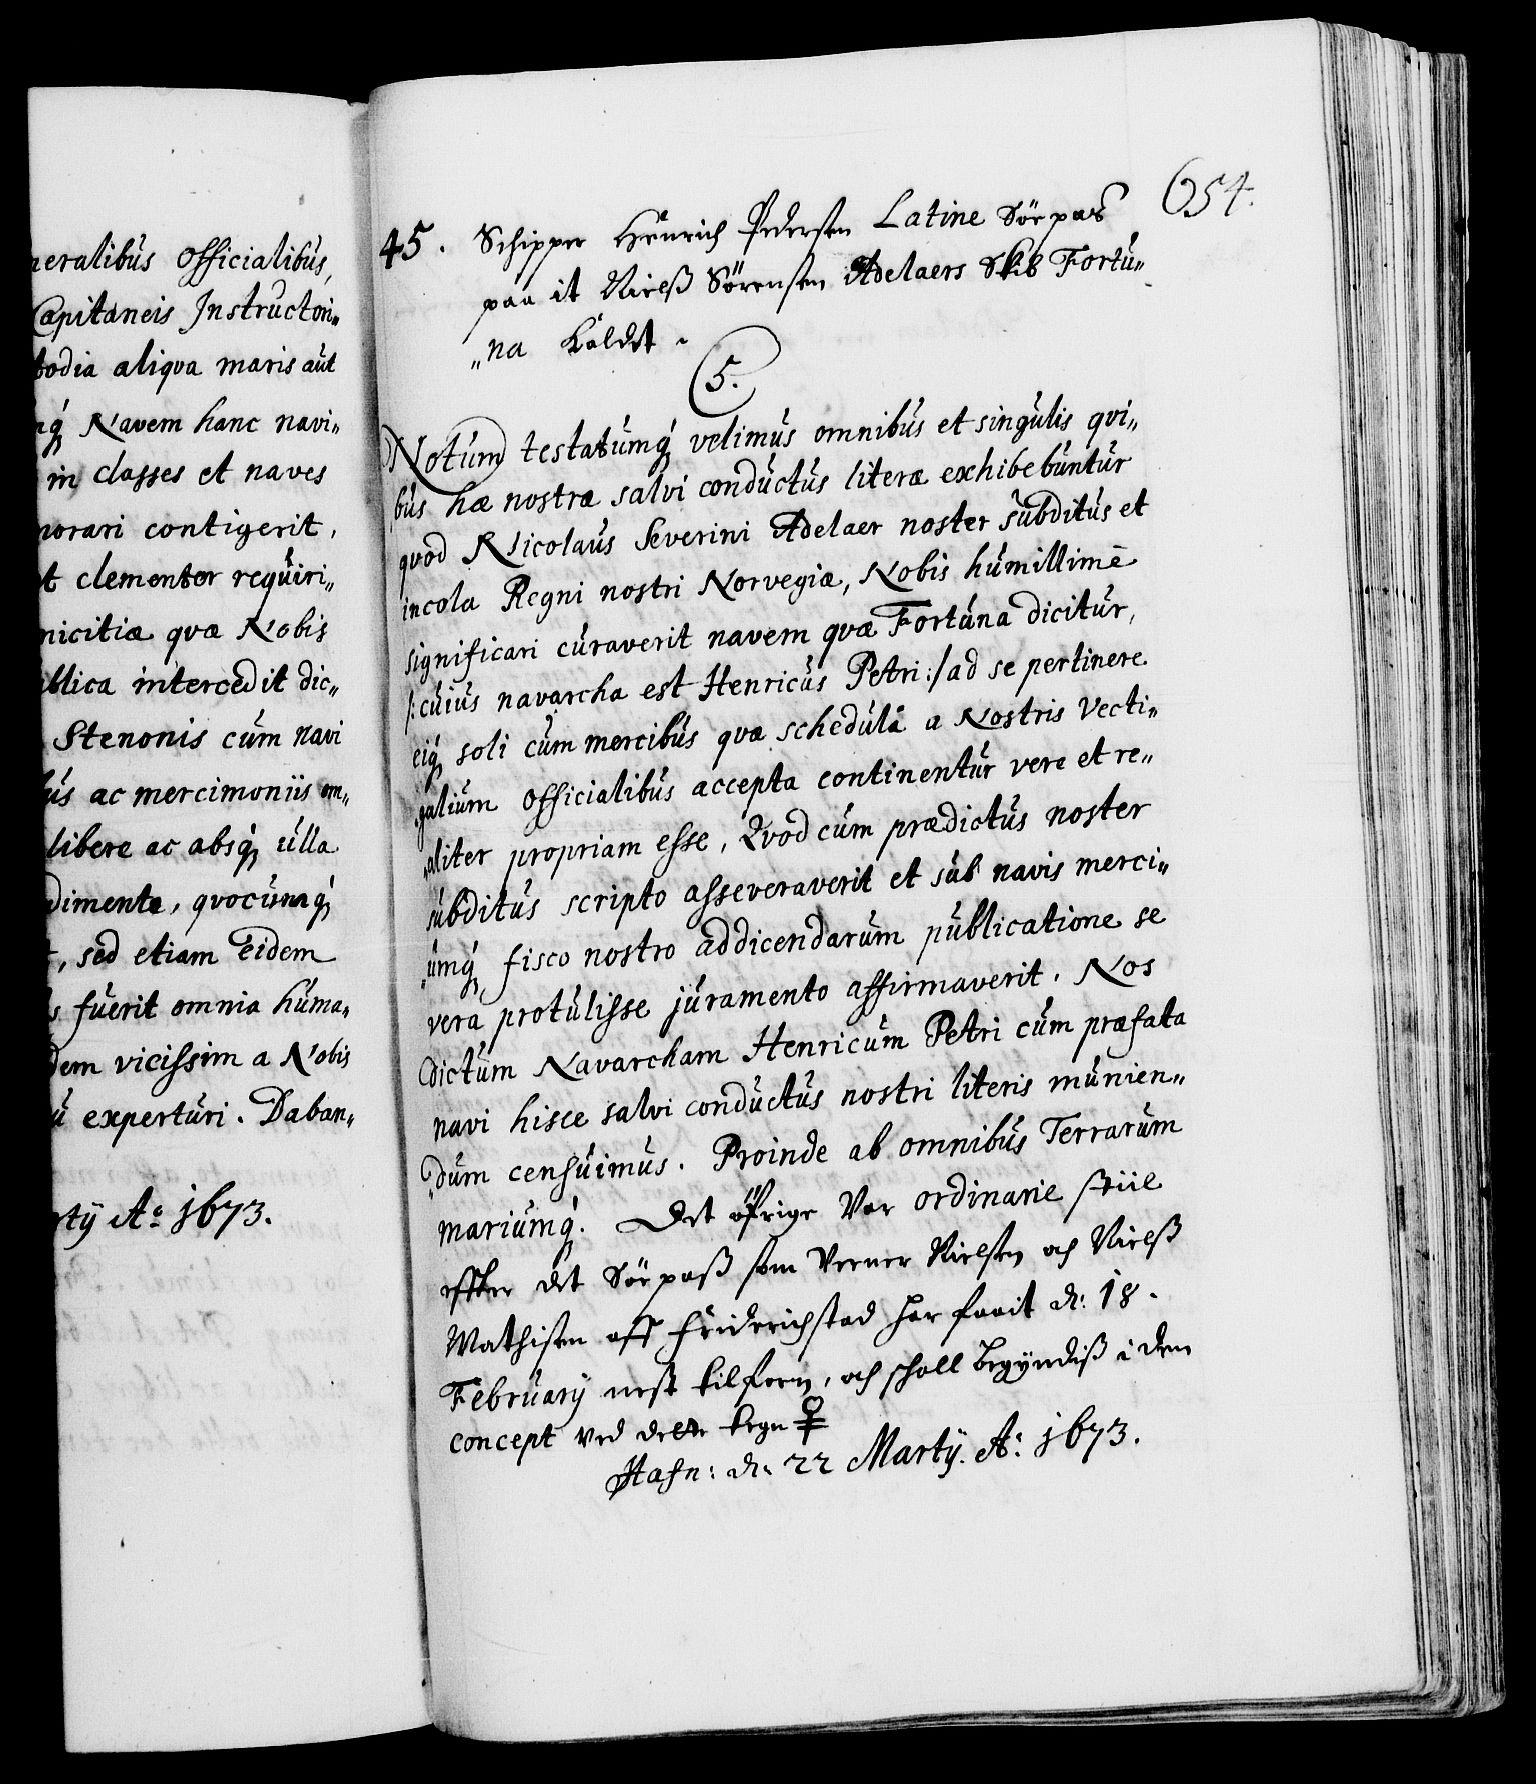 neralibus officialibus,
Capitaneis Instructori„
todia aliqva maris aut
nq́ Navem hanc navi„
in classes et naves
morari contigerit,
t clementer reqviri„
nicitiæ qvæ Nobis
ublica intercedit dic„
Stenonis cum navi
us ac mercimoniis om„
libere ac absq́ ulla
dimento, qvocunq́
, sed etiam Eidem
s fuerit omnia huma„
dem vicissim a Nobis
u experturi. Daban„
rtÿ Aͦ: 1673.
654.
45. Schipper Henrich Pedersen Latine Söe pas
paa it Nielß Sörensen Adelaers Skib Fortu„
„na kaldet.
5.
Notum testatumq́ velimus omnibus et singulis qvi„
bus hæ nostræ salvi conductus literæ exhibebuntur
qvod Nicolaus Severini Adelaer noster subditus et
incola Regni nostri Norvegiæ, Nobis humillimè
significari curaverit navem qvæ Fortuna dicitur,
/: cuius navarcha est Henricus Petri :/ ad se pertinere
eiq́ soli cum mercibus qvæ schedulâ a Nostris Vecti„
„galium officialibus accepta continentur vere et re„
„aliter propriam esse, Qvod cum prædictus noster
subditus scripto asseveraverit et sub navis merci„
„umq́ fisco nostro addicendarum publicatione se
vera protulisse juramento affirmaverit. Nos
dictum Navarcham Henricum Petri cum præfata
navi hisce salvi conductus nostri literis munien„
„dum censuimus. Proinde ab omnibus Terrarum
mariumq́. Det öfrige Var ordinarie stiil
effter det Söe paß som Verner Nielsen och Nielß
Mathisen aff Friderichstad har faait d: 18.
Februarÿ nest tilforn, och schall begÿndiß i dem
concept ved dette tegn ♀
Hafn: d: 22 Martÿ. Aͦ: 1673.